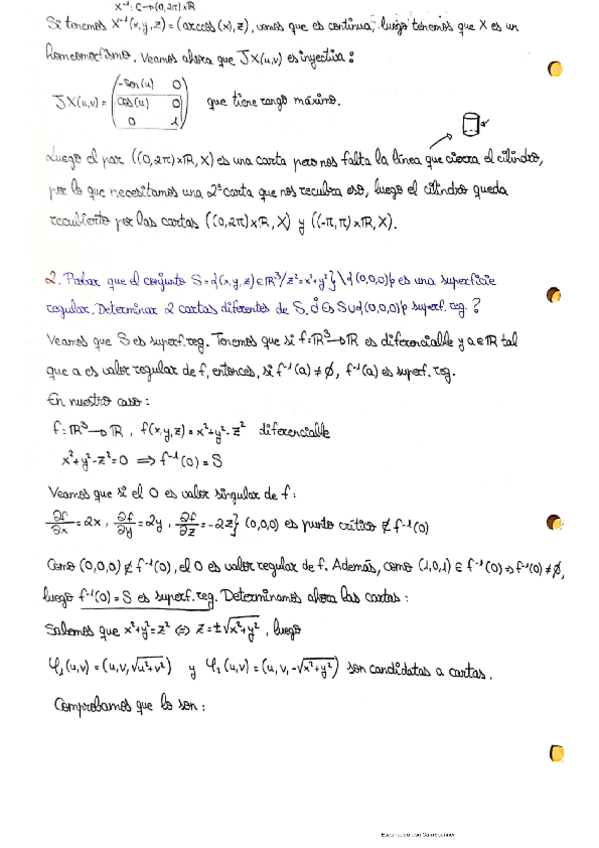 X⁻¹: C→(0,2π)×ℝ
Si tenemos X⁻¹(x,y,z)=(arccos(x),z), vemos que es continua, luego tenemos que X es un
homeomorfismo. Veamos ahora que JX(u,v) es inyectiva:
JX(u,v) = (-sen(u) 0
cos(u) 0
0 1) que tiene rango máximo.
Luego el par ((0,2π)×ℝ, X) es una carta pero nos falta la línea que cierra el cilindro,
por lo que necesitamos una 2ª carta que nos recubra eso, luego el cilindro queda
recubierto por las cartas ((0,2π)×ℝ, X) y ((-π,π)×ℝ, X).
2. Probar que el conjunto S={(x,y,z)∈ℝ³/z²=x²+y²}\{(0,0,0)} es una superficie
regular. Determinar 2 cartas diferentes de S. ¿Es S∪{(0,0,0)} superf. reg.?
Veamos que S es superf. reg. Tenemos que si f:ℝ³→ℝ es diferenciable y a∈ℝ tal
que a es valor regular de f, entonces, si f⁻¹(a)≠∅, f⁻¹(a) es superf. reg.
En nuestro caso:
f:ℝ³→ℝ, f(x,y,z)=x²+y²-z² diferenciable
x²+y²-z²=0 ⟹ f⁻¹(0)=S
Veamos que si el 0 es valor singular de f:
∂f/∂x=2x, ∂f/∂y=2y, ∂f/∂z=-2z} (0,0,0) es punto crítico ∉ f⁻¹(0)
Como (0,0,0)∉f⁻¹(0), el 0 es valor regular de f. Además, como (1,0,1)∈f⁻¹(0)⇒f⁻¹(0)≠∅,
luego f⁻¹(0)=S es superf. reg. Determinamos ahora las cartas:
Sabemos que x²+y²=z² ⟺ z=±√x²+y², luego
φ₁(u,v)=(u,v,√u²+v²) y φ₂(u,v)=(u,v,-√x²+y²) son candidatas a cartas.
Comprobamos que lo son:
Escaneado con CamScanner